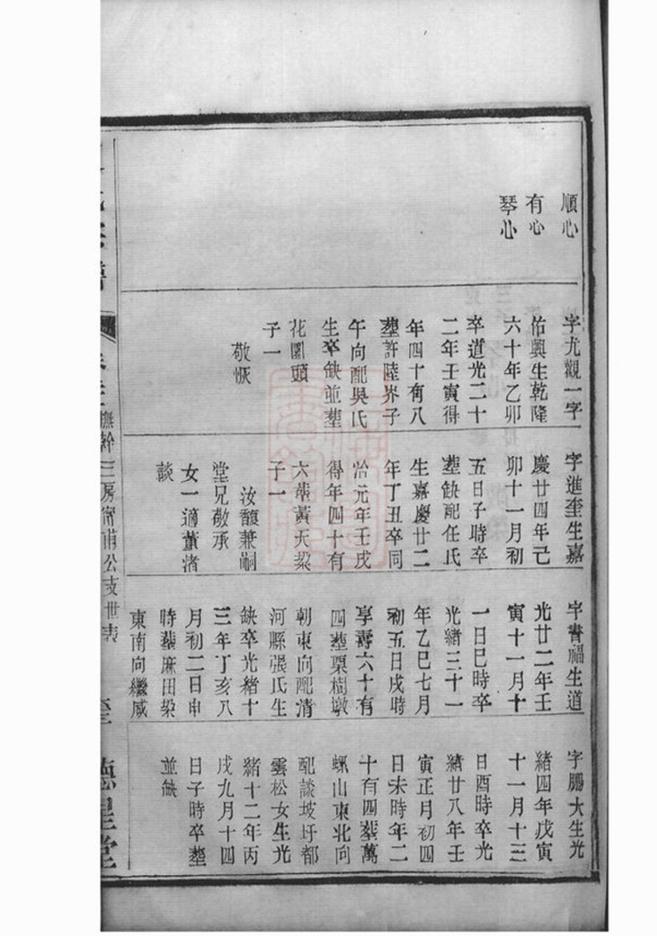 順心
有心
琴心
字尤觀一字
佑興生乾隆
六十年乙卯
卒道光二十
二年壬寅得
年四十有八
塟許陸界子
午向配吳氏
生卒缺並塟
花園頭
子一
敬恢
字進奎生嘉
慶廿四年己
卯十一月初
五日子時卒
塟缺配任氏
生嘉慶廿二
年丁丑卒同
治元年壬戌
得年四十有
六塟黃天梁
子一
汝馥兼嗣
堂兄敬承
女一適董渚
談
字書福生道
光廿二年壬
寅十一月十
一日巳時卒
光緒三十一
年乙巳七月
初五日戌時
享壽六十有
四塟栗樹墩
朝東向配清
河縣張氏生
缺卒光緒十
三年丁亥八
月初二日申
時塟麻田梁
東南向繼咸
字鵬大生光
緒四年戊寅
十一月十三
日酉時卒光
緒廿八年壬
寅正月初四
日未時年二
十有四塟萬
螺山東北向
配談坡圩都
雲松女生光
緒十二年丙
戌九月十四
日子時卒塟
並缺
氏宗譜
撫幹三房甯甫公支世表
德星堂